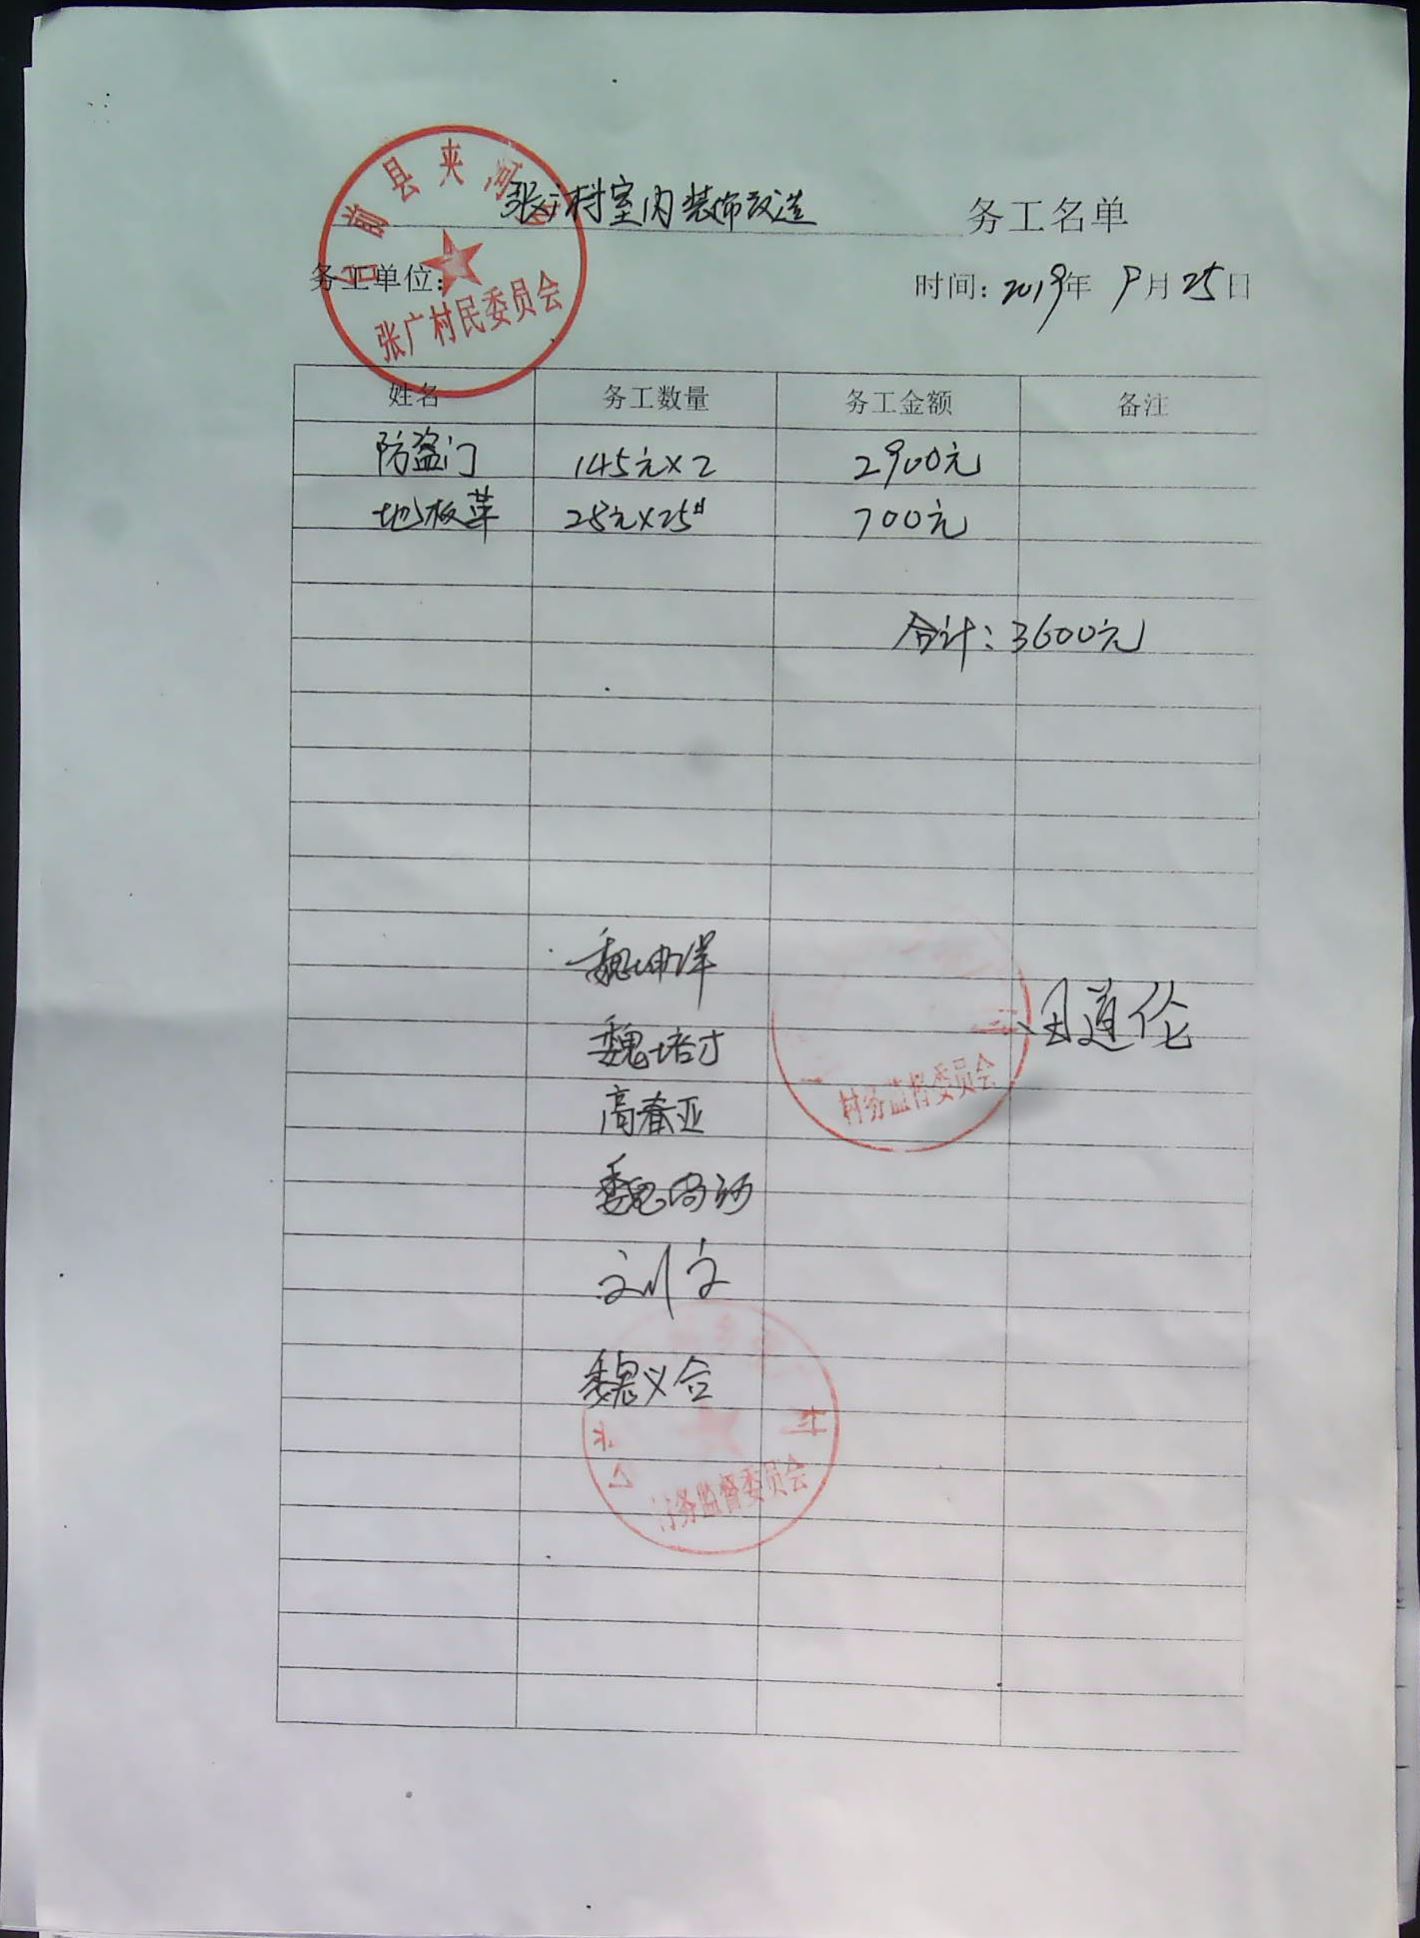 台前县夹河
张广村室内装饰改造 务工名单
务工单位： 时间：2019年 9月25日
张广村民委员会
姓名 务工数量 务工金额 备注
防盗门 145元×2 2900元
地板革 28元×25 700元
合计：3600元
魏培才
田道伦
村务监督委员会
高春亚
刘文
魏义合
村务监督委员会